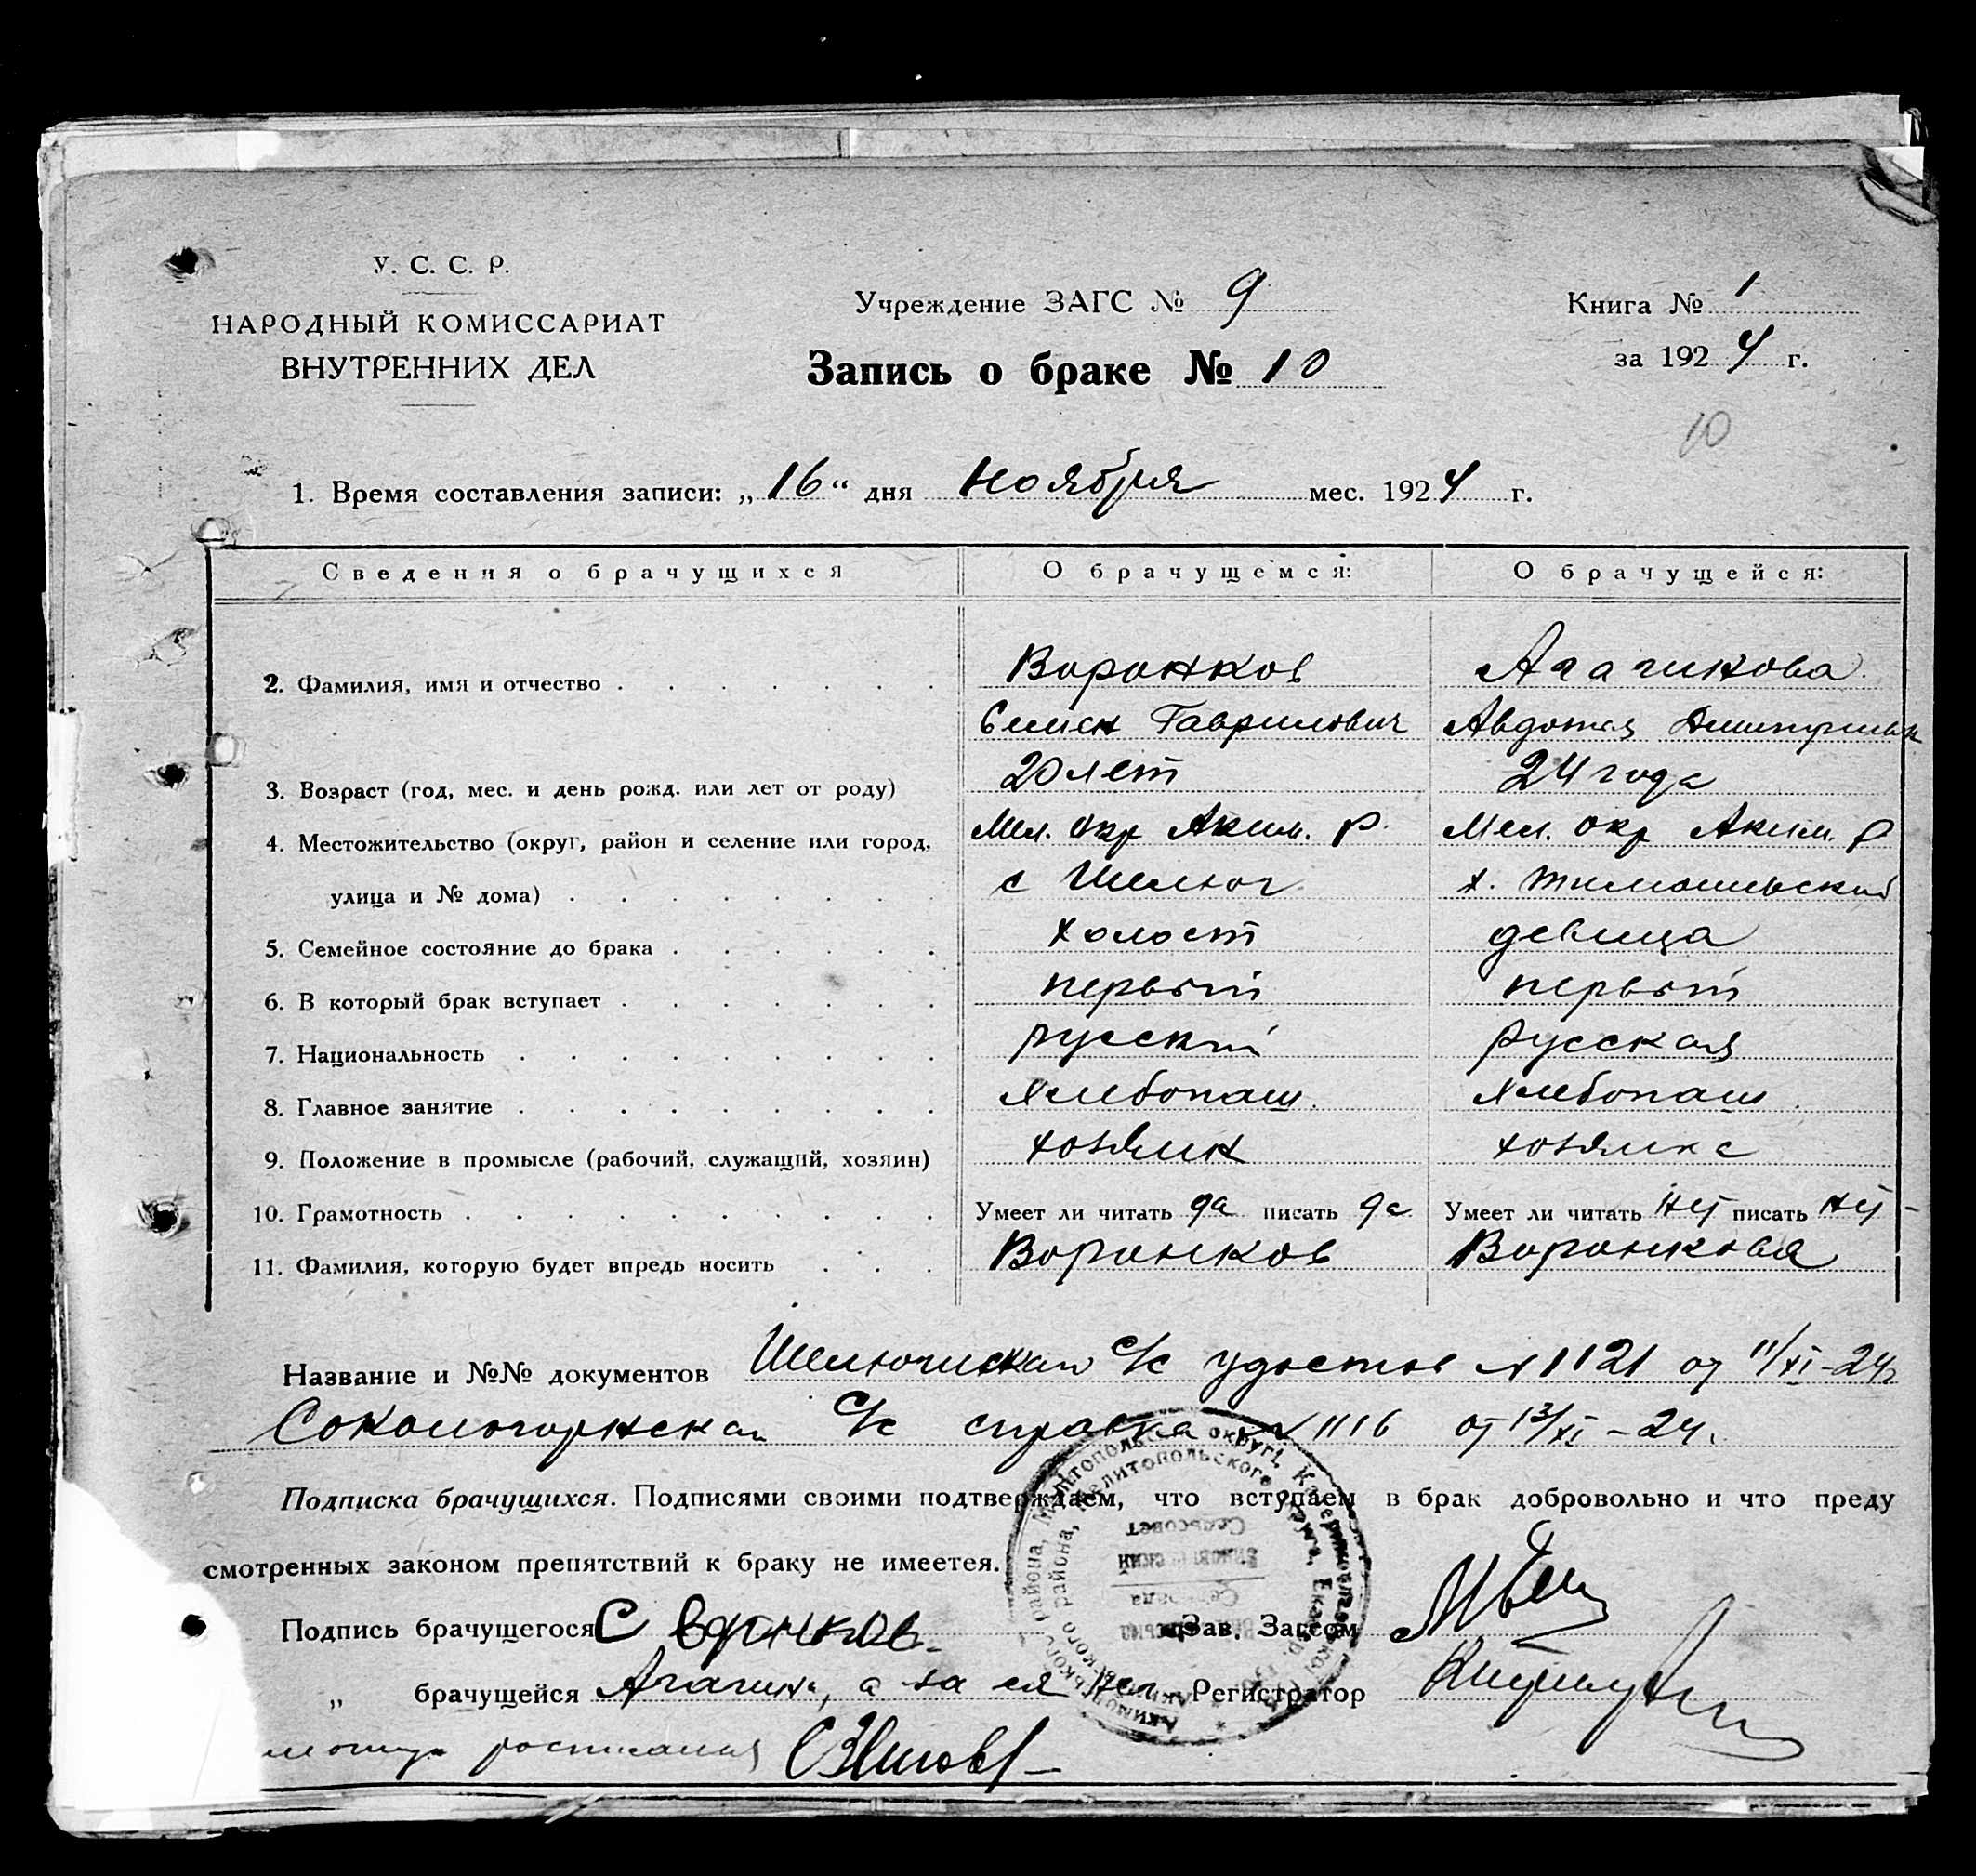 У. С. С. Р.
НАРОДНЫЙ КОМИССАРИАТ
ВНУТРЕННИХ ДЕЛ
Учреждение ЗАГС № 9
Запись о браке № 10
Книга № 1
за 1924 г.
10
1. Время составления записи: „16“ дня ноября мес. 1924 г.
Сведения о брачущихся О брачущемся: О брачущейся:
2. Фамилия, имя и отчество Воронков Агапикова
Семен Гаврилович Авдотья
3. Возраст (год, мес. и день рожд. или лет от роду) 20 лет 24 года
4. Местожительство (округ, район и селение или город, Мел. окр Аким. р. Мел. окр Аким. р
улица и № дома) с Шелюг х.
5. Семейное состояние до брака холост девица
6. В который брак вступает первый первый
7. Национальность русский русская
8. Главное занятие хлебопаш. хлебопаш.
9. Положение в промысле (рабочий, служащий, хозяин) хозяин хозяйка
10. Грамотность Умеет ли читать да писать да Умеет ли читать нет писать нет
11. Фамилия, которую будет впредь носить Воронков Воронкова
Название и №№ документов с/с удостов № 1121 от 11/XI-24г
Сокологорнская с/с справка № 1116 от 13/XI-24.
Подписка брачущихся. Подписями своими подтверждаем, что вступаем в брак добровольно и что преду
смотренных законом препятствий к браку не имеетея.
Подпись брачущегося С Воронков Зав. Загсом
„ брачущейся а за ея Регистратор